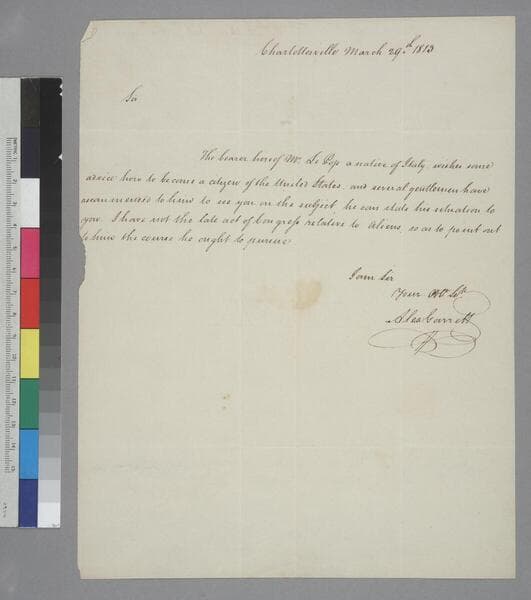 Charlottesville March 29th 1813
Sir
The bearer hereof Mr. De Pop a native of Italy, wishes some
advice how to become a citizen of the United States, and several gentlemen have
recommended to him to see you on the subject he can state his situation to
you. I have not the late act of Congress relative to Aliens, so as to point out
to him the course he ought to pursue
I am Sir
Your Obt. St.
Alex Garrett